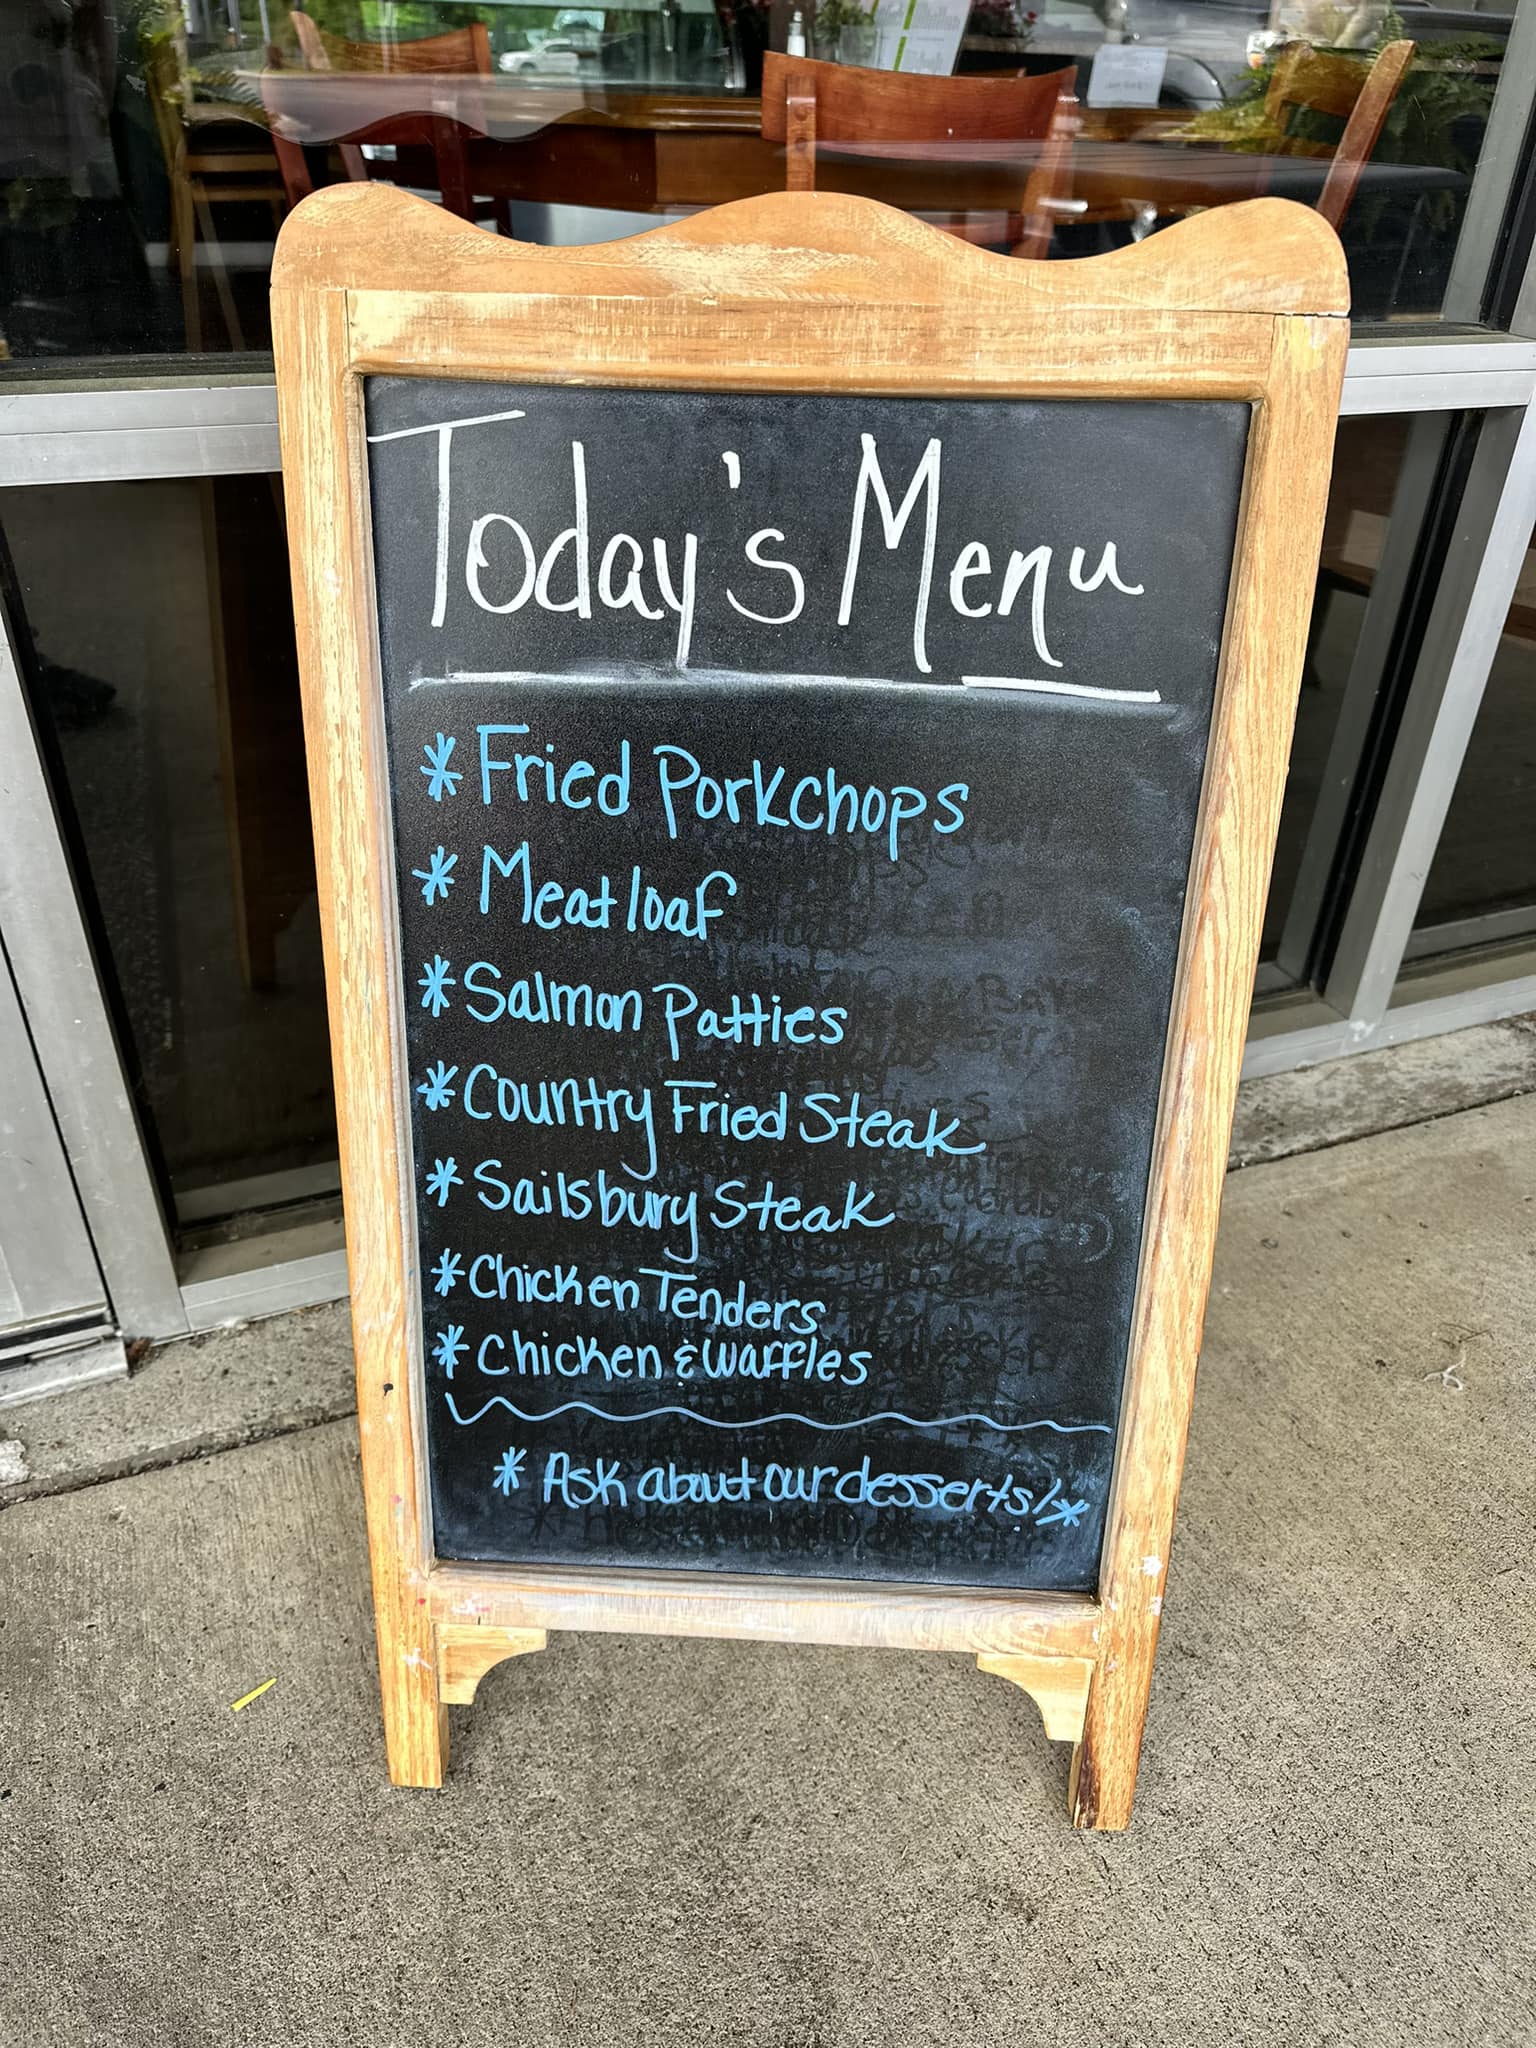 Today's Menu
* Fried Porkchops
* Meatloaf
* Salmon Patties
* Country Fried Steak
* Sailsbury Steak
* Chicken Tenders
* Chicken & Waffles
* Ask about our desserts! *